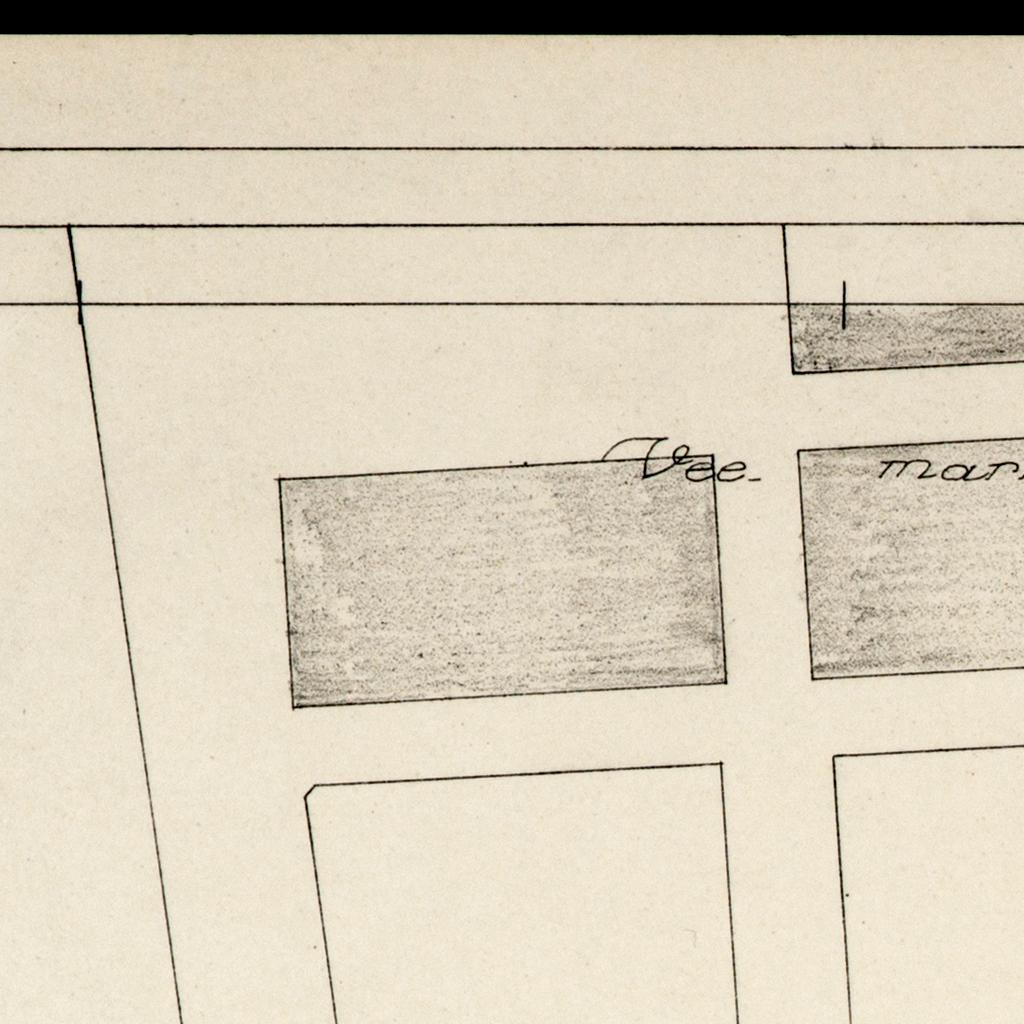 Vee- mar